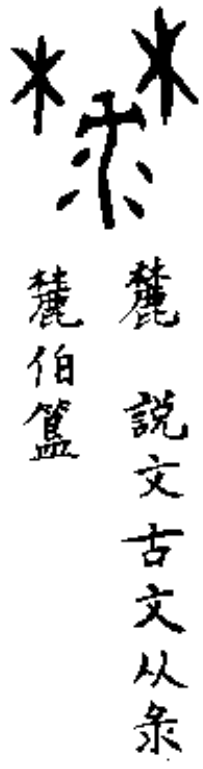 麓 說文古文从彔
麓伯簋